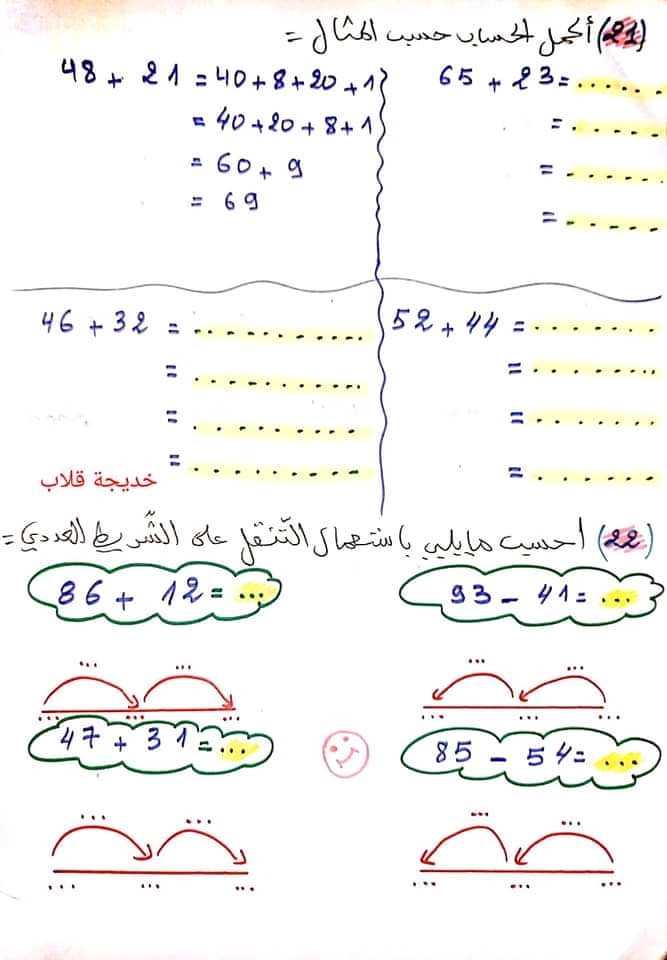 21) أكمل الحساب حسب المثال =
48 + 21 = 40+8+20+1
= 40+20+8+1
= 60+9
= 69
65 + 23 = ......
= ......
= ......
= ......
46 + 32 = ............
= ...........
= .........
= .........
52 + 44 = ........
= ........
= .......
= ......
خديجة قلاب
22) أحسب ما يلي باستعمال التّنقل على الشّريط العددي =
86 + 12 = ...
93 - 41 = ...
... ...
... ... ...
... ...
... ... ...
47 + 31 = ...
85 - 54 = ...
... ...
... ... ...
... ...
... ... ...